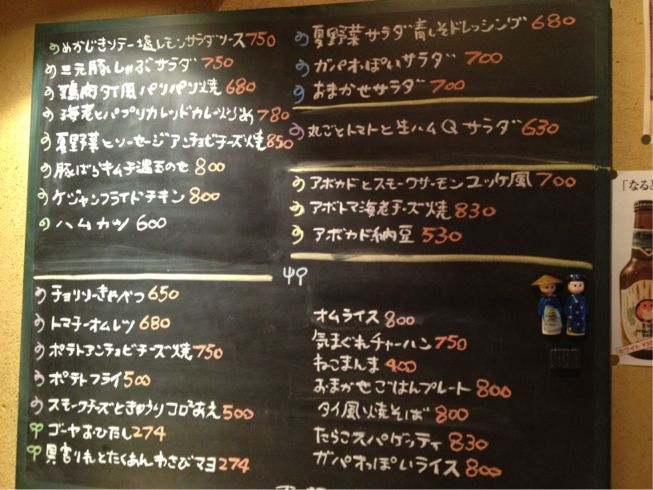 めかじきソテー塩レモンサラダソース750
三元豚しゃぶサラダ 750
鶏肉タイ風パリパリ焼 680
海老とパプリカレッドカレー炒め 780
夏野菜とソーセージアンチョビチーズ焼850
豚ばらキムチ温玉のせ 800
ケジャンフライドチキン 800
ハムカツ 600
チョリソーきゃべつ 650
トマチーオムレツ 680
ポテトアンチョビチーズ焼 750
ポテトフライ 500
スモークチーズときゅうりコロコロあえ 500
ゴーヤおひたし 274
貝割れとたくあんわさびマヨ 274
夏野菜サラダ青しそドレッシング 680
ガパオっぽいサラダ 700
おまかせサラダ 700
丸ごとトマトと生ハムQサラダ 630
アボカドとスモークサーモンユッケ風 700
アボトマ海老チーズ焼 830
アボカド納豆 530
オムライス 800
気まぐれチャーハン 750
ねこまんま 400
おまかせごはんプレート 800
タイ風焼そば 800
たらこスパゲッティ 830
ガパオっぽいライス 800
「なると
ホワイト